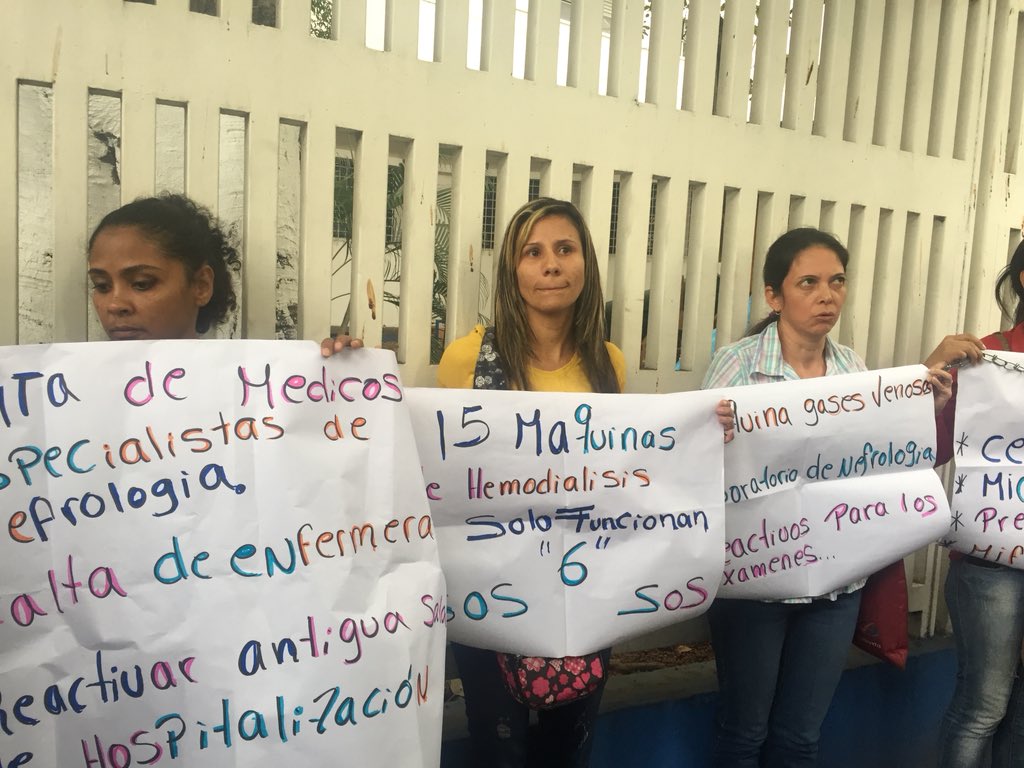 lTA de Medicos
specialistas de
efrologia.
alta de enfermera
Reactivar antigua Sala
de Hospitalización
15 Maquinas
e Hemodialisis
Solo Funcionan
"6"
SOS SOS
quina gases Venosos
oratorio de Nefrologia
eactivos Para los
xamenes...
* Ce
* Mic
* Pre